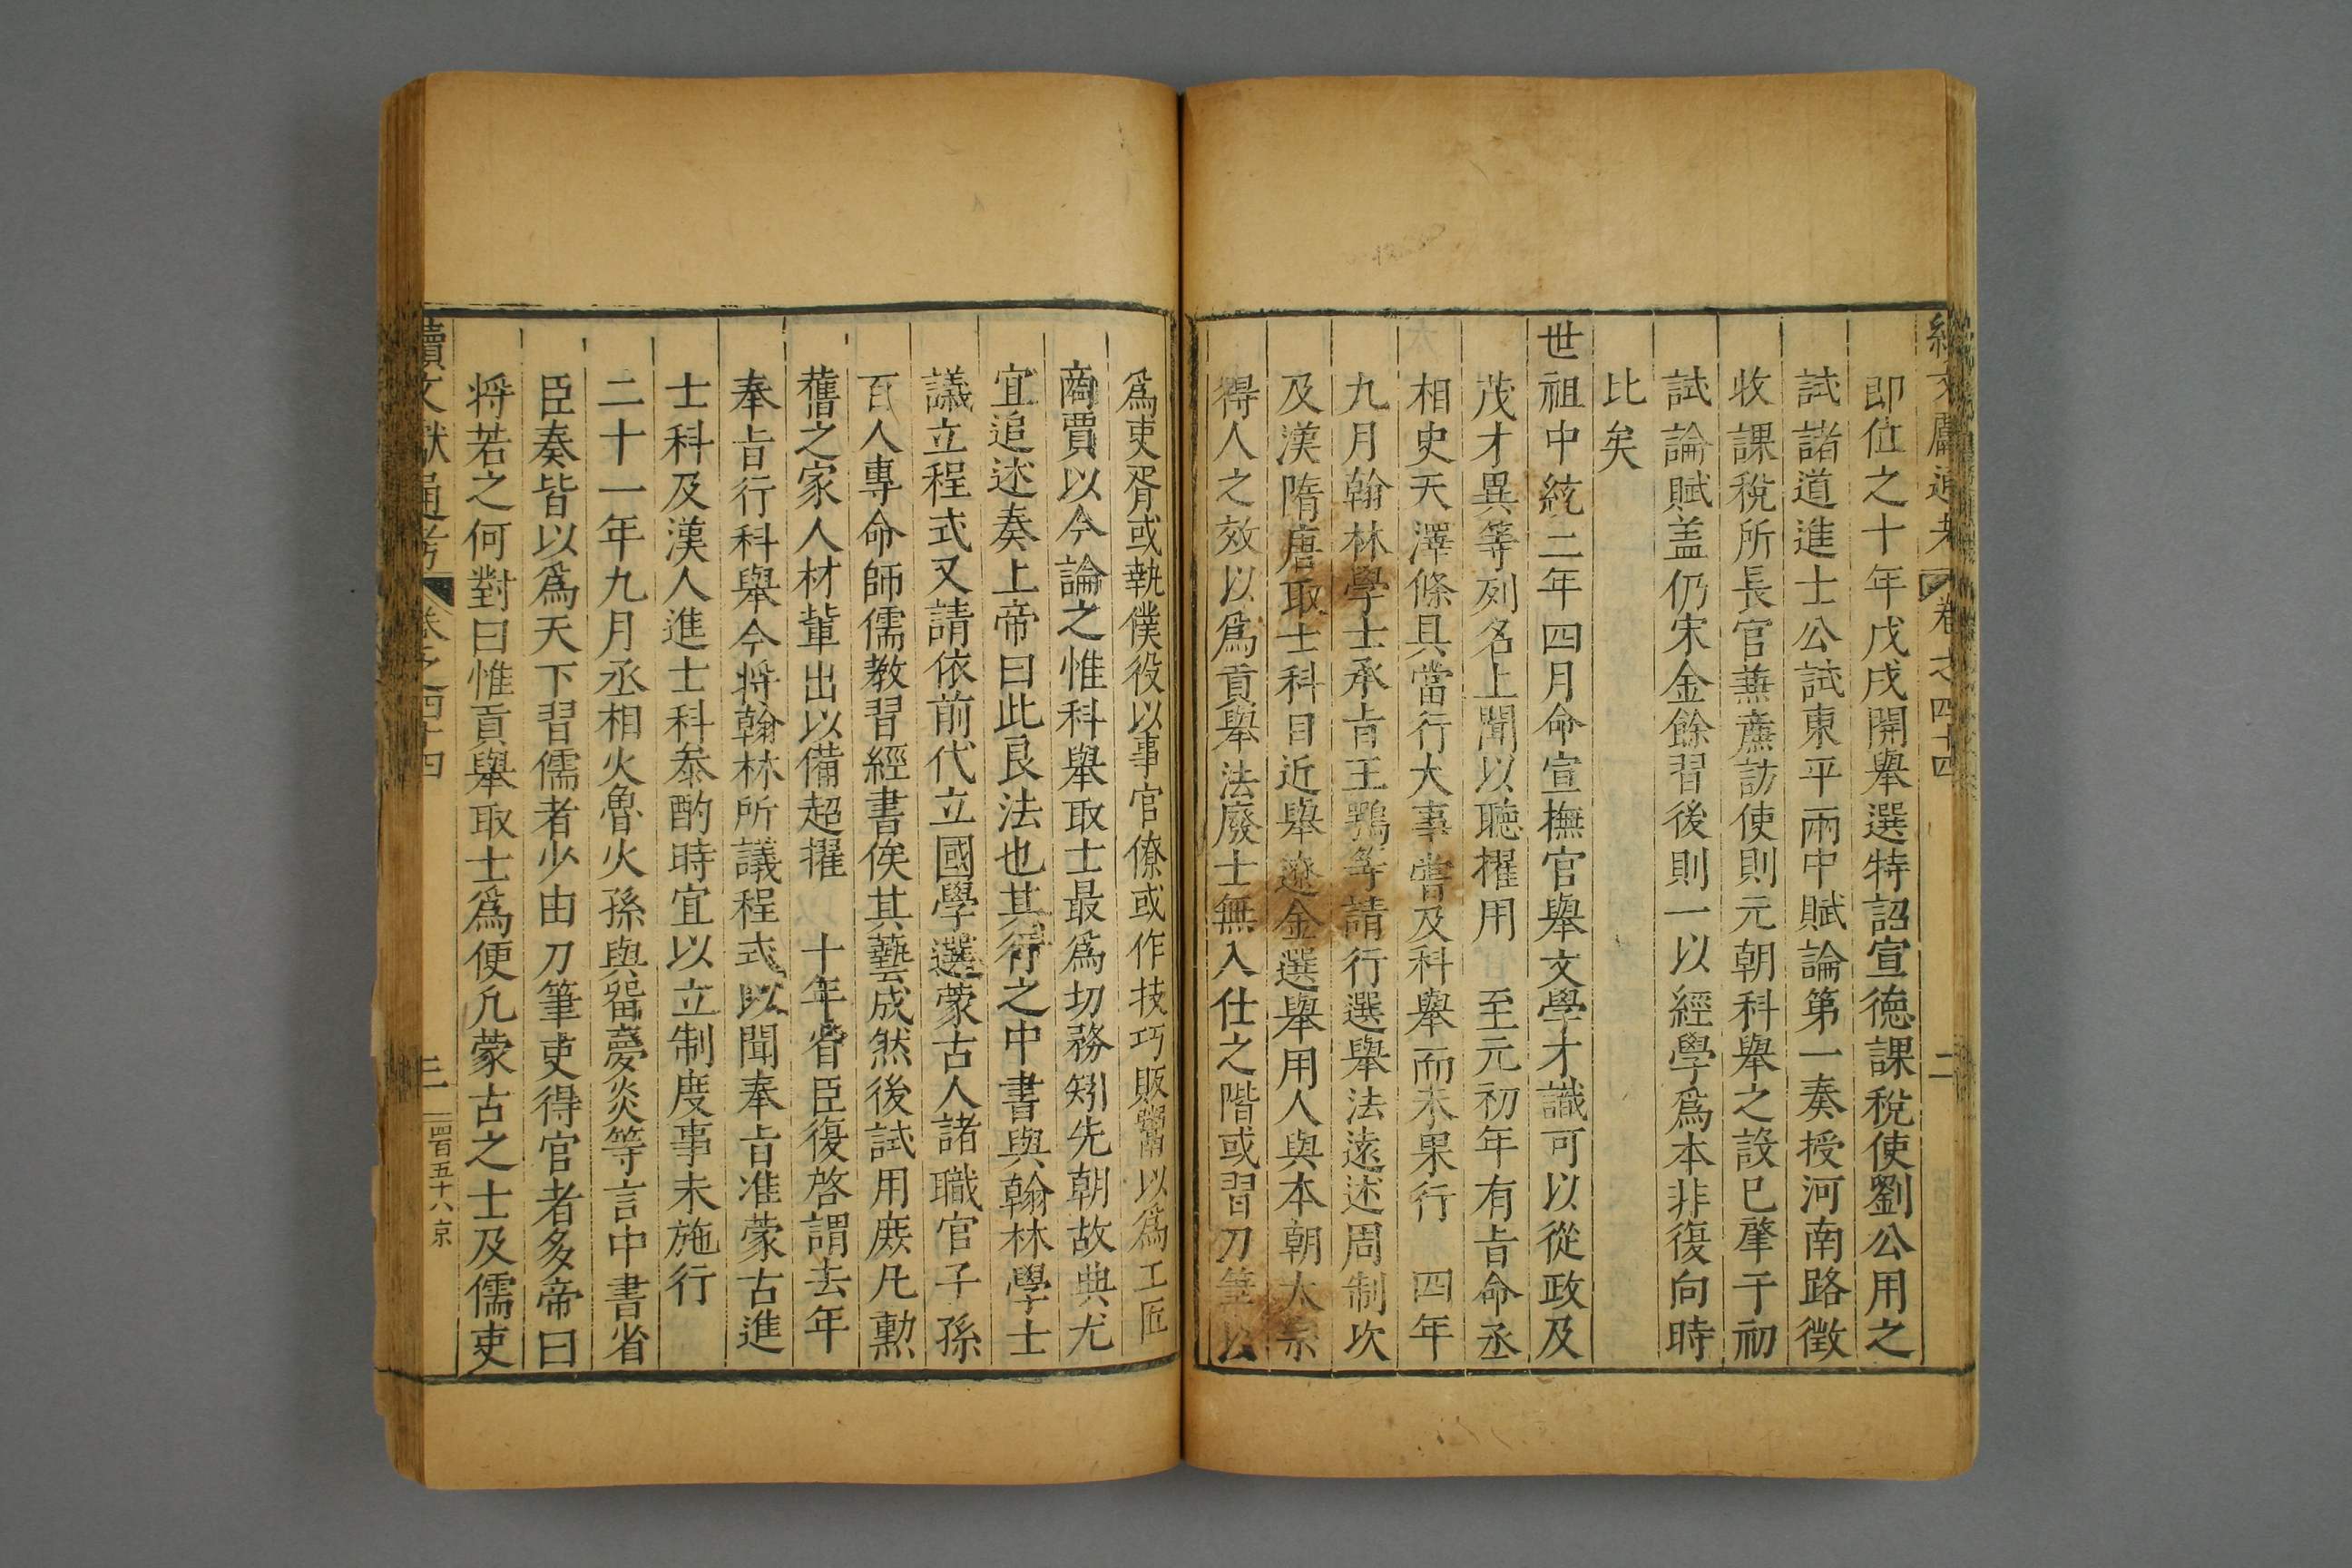 續文獻通考 卷之四十四 二
即位之十年戊戌開舉選特詔宣德課稅使劉公用之
試諸道進士公試東平兩中賦論第一奏授河南路徵
收課稅所長官兼廉訪使則元朝科舉之設已肇于初
試論賦盖仍宋金餘習後則一以經學爲本非復向時
比矣
世祖中統二年四月命宣撫官舉文學才識可以從政及
茂才異等列名上聞以聽擢用 至元初年有旨命丞
相史天澤條具當行大事嘗及科舉而未果行 四年
九月翰林學士承旨王鶚等請行選舉法遠述周制次
及漢隋唐取士科目近舉遼金選舉用人與本朝太宗
得人之效以爲貢舉法廢士無入仕之階或習刀筆以
爲吏胥或執僕役以事官僚或作技巧販鬻以爲工匠
商賈以今論之惟科舉取士最爲切務矧先朝故典尤
宜追述奏上帝曰此良法也其行之中書與翰林學士
議立程式又請依前代立國學選蒙古人諸職官子孫
百人專命師儒教習經書俟其藝成然後試用庻凡勳
舊之家人材輩出以備超擢 十年省臣復啓謂去年
奉旨行科舉今将翰林所議程式以聞奉旨准蒙古進
士科及漢人進士科叅酌時宜以立制度事未施行
二十一年九月丞相火魯火孫與畱夢炎等言中書省
臣奏皆以爲天下習儒者少由刀筆吏得官者多帝曰
将若之何對曰惟貢舉取士爲便凡蒙古之士及儒吏
續文獻通考 卷之四十四 三 四百五十八 京